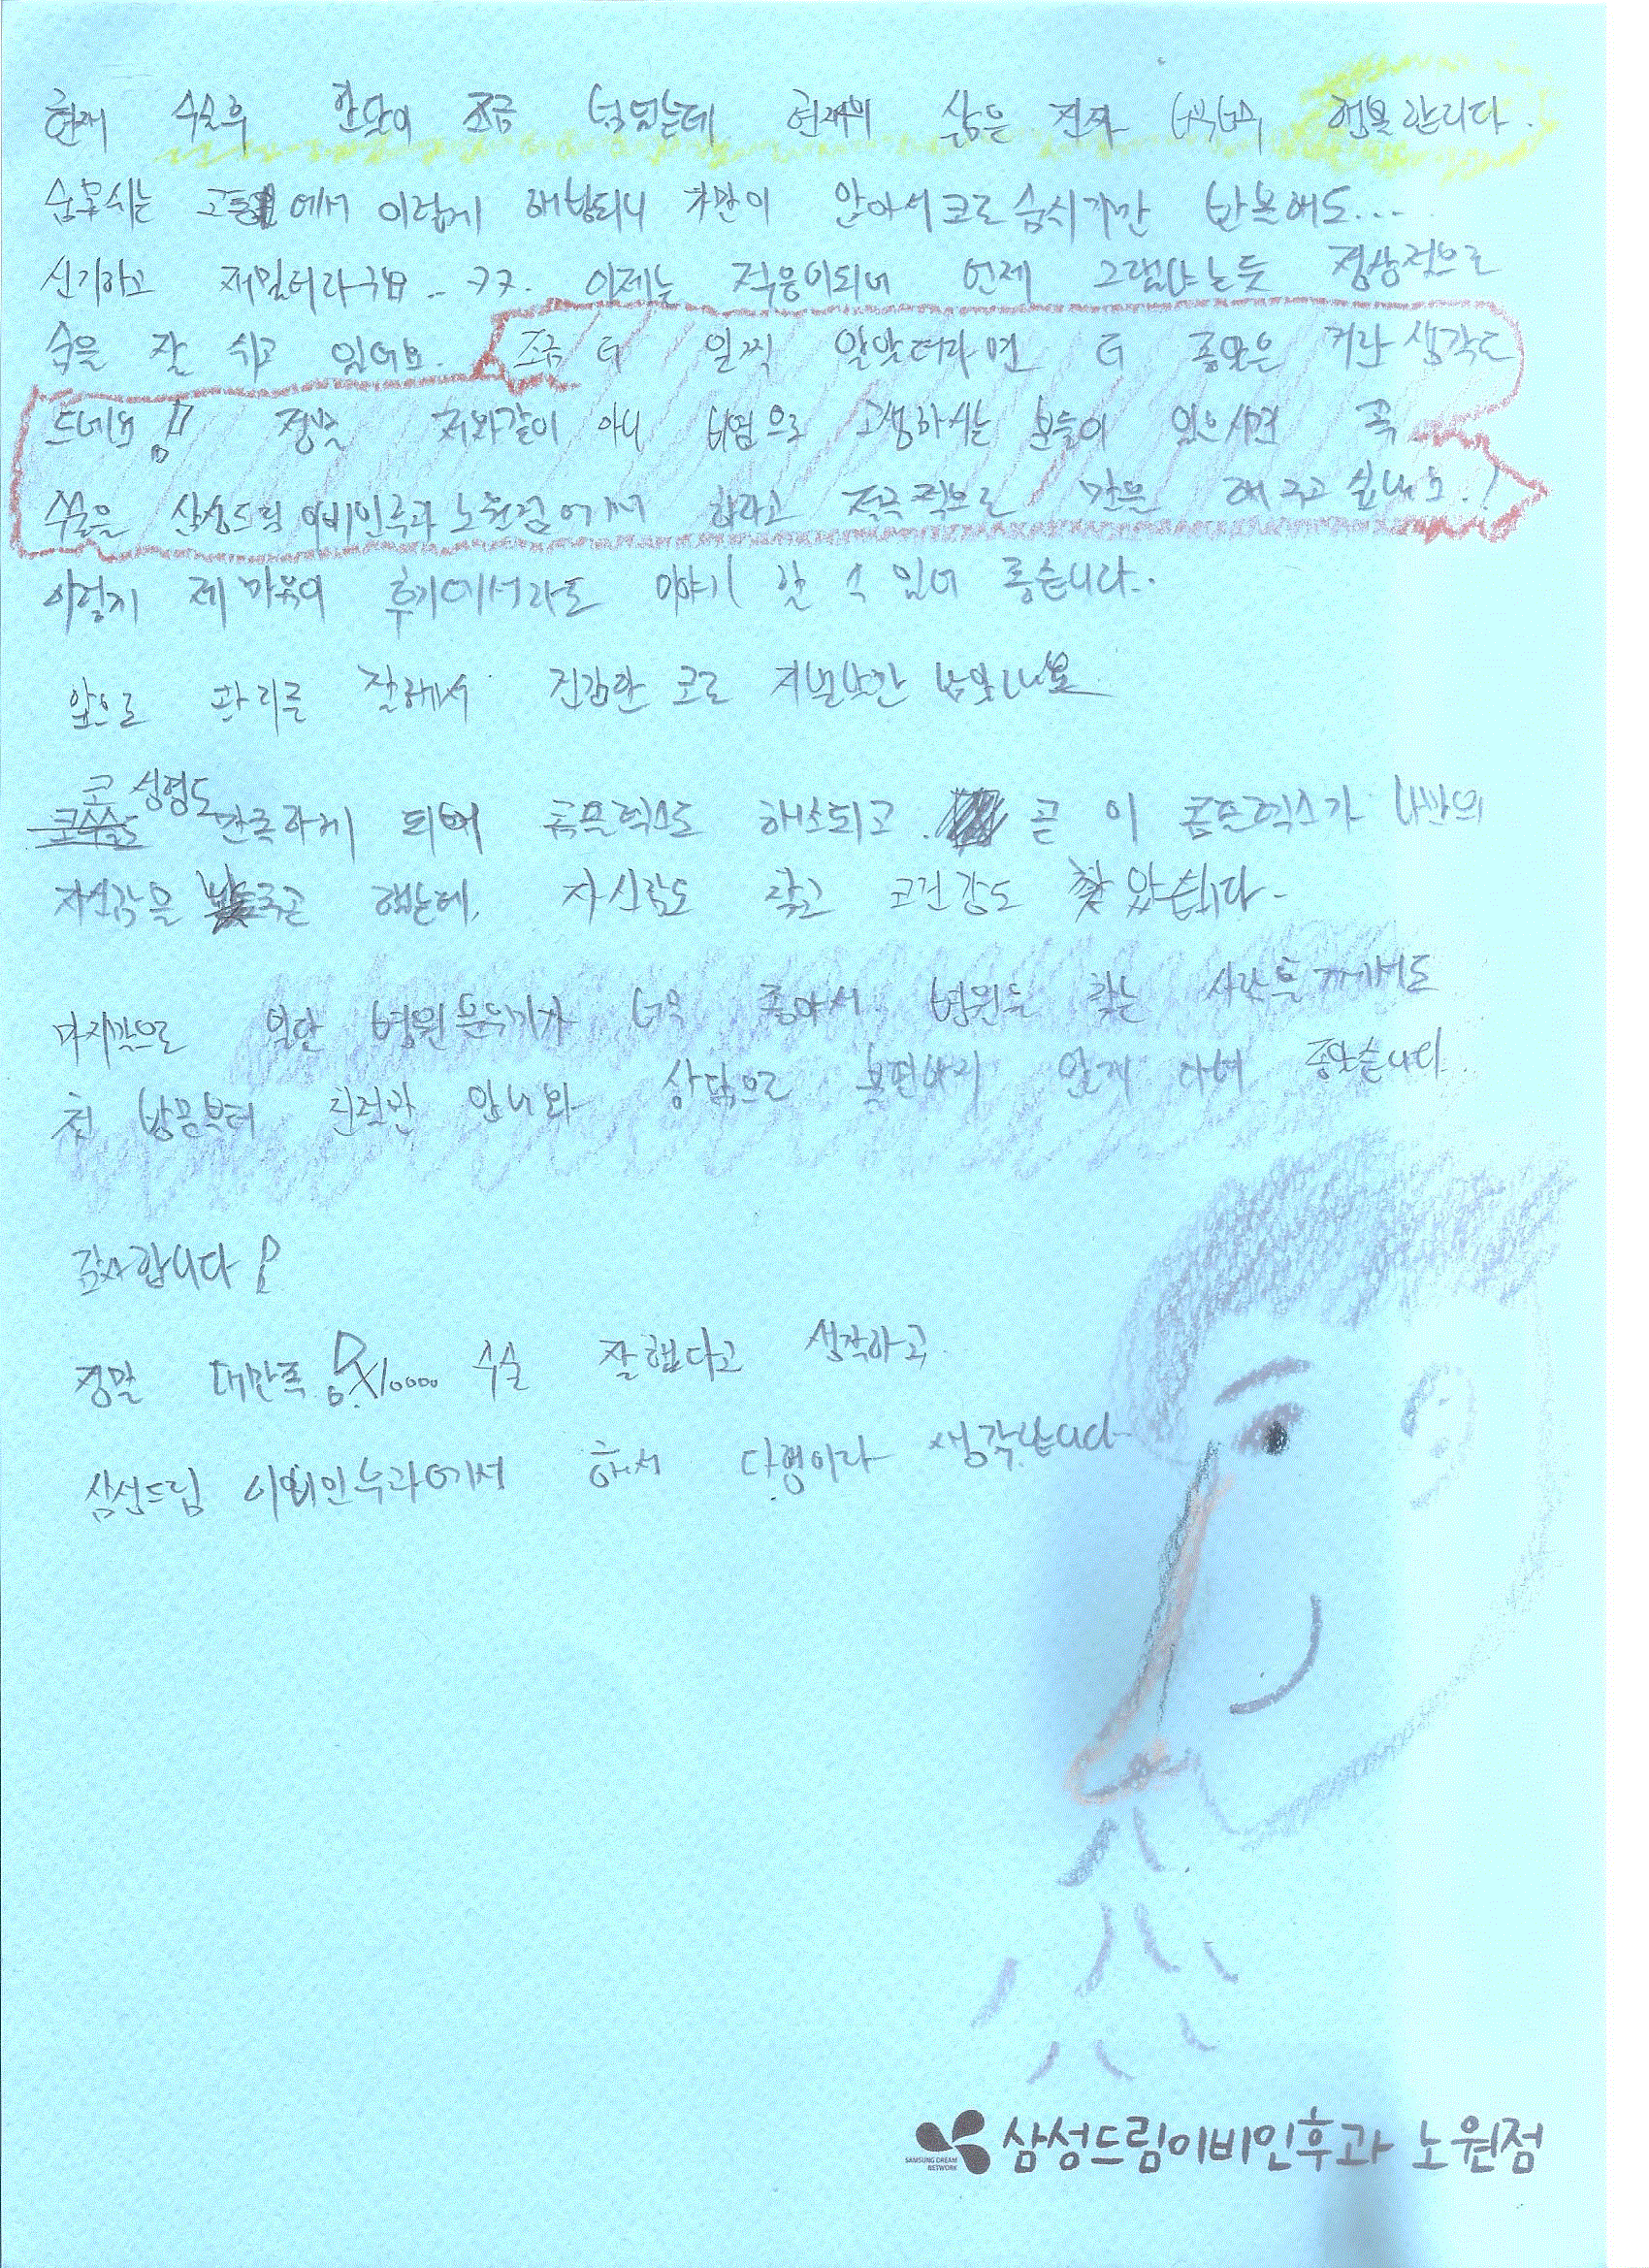 현재 수술후 한달이 조금 넘었는데 현재의 삶은 진짜 너무너무 행복합니다.
숨못쉬는 고통에서 이렇게 해방되니 가만이 앉아서 코로 숨쉬기만 반복해도...
신기하고 재밌더라구요.. ㅋㅋ. 이제는 적응이되어 언제 그랬냐는듯 정상적으로
숨을 잘 쉬고 있어요. 조금 더 일찍 알았더라면 더 좋았을 거란 생각도
드네요!! 정말 저와같이 아니 비염으로 고생하시는 분들이 있으시면 꼭
수술은 삼성드림이비인후과 노원점에서 하라고 적극적으로 말을 해주고 싶네요.!
이렇게 제 마음이 후기에서라도 이야기 할 수 있어 좋습니다.
앞으로 관리를 잘해서 건강한 코로 지낼날만 남았네요
코 성형도
코수술도 만족하게 되어 콤플렉스도 해소되고. 곧 이 콤플렉스가 나만의
자신감을 낮추곤 했는데, 자신감도 찾고 코건강도 찾았습니다.
마지막으로 일단 병원분위기가 너무 좋아서 병원을 찾는 사람들께서도
첫 방문부터 친절한 안내와 상담으로 불편하지 않게 다녀 좋았습니다
감사합니다!
정말 대만족!!X10000 수술 잘했다고 생각하고
삼성드림 이비인후과에서 해서 다행이라 생각합니다
SAMSUNG DREAM
NETWORK
삼성드림이비인후과 노원점